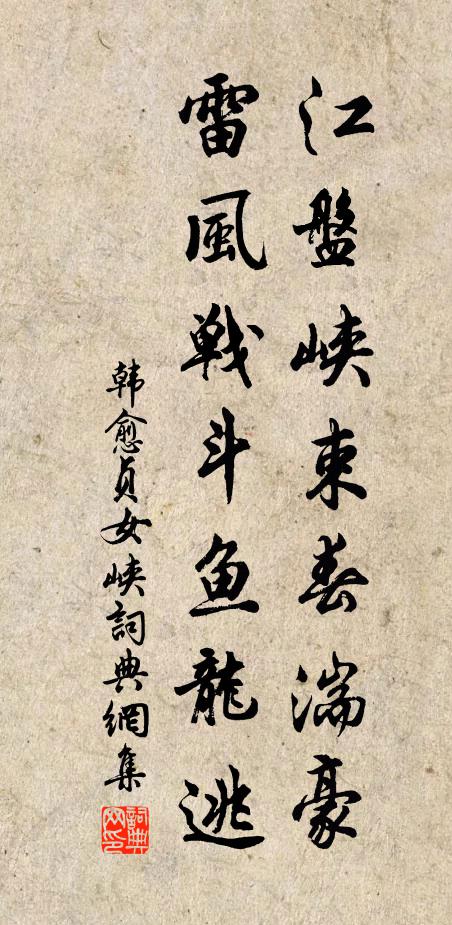 江盤峽束春湍豪
雷風戰斗鱼龍逃
韩愈貞女峽詞典網集
詞典网印